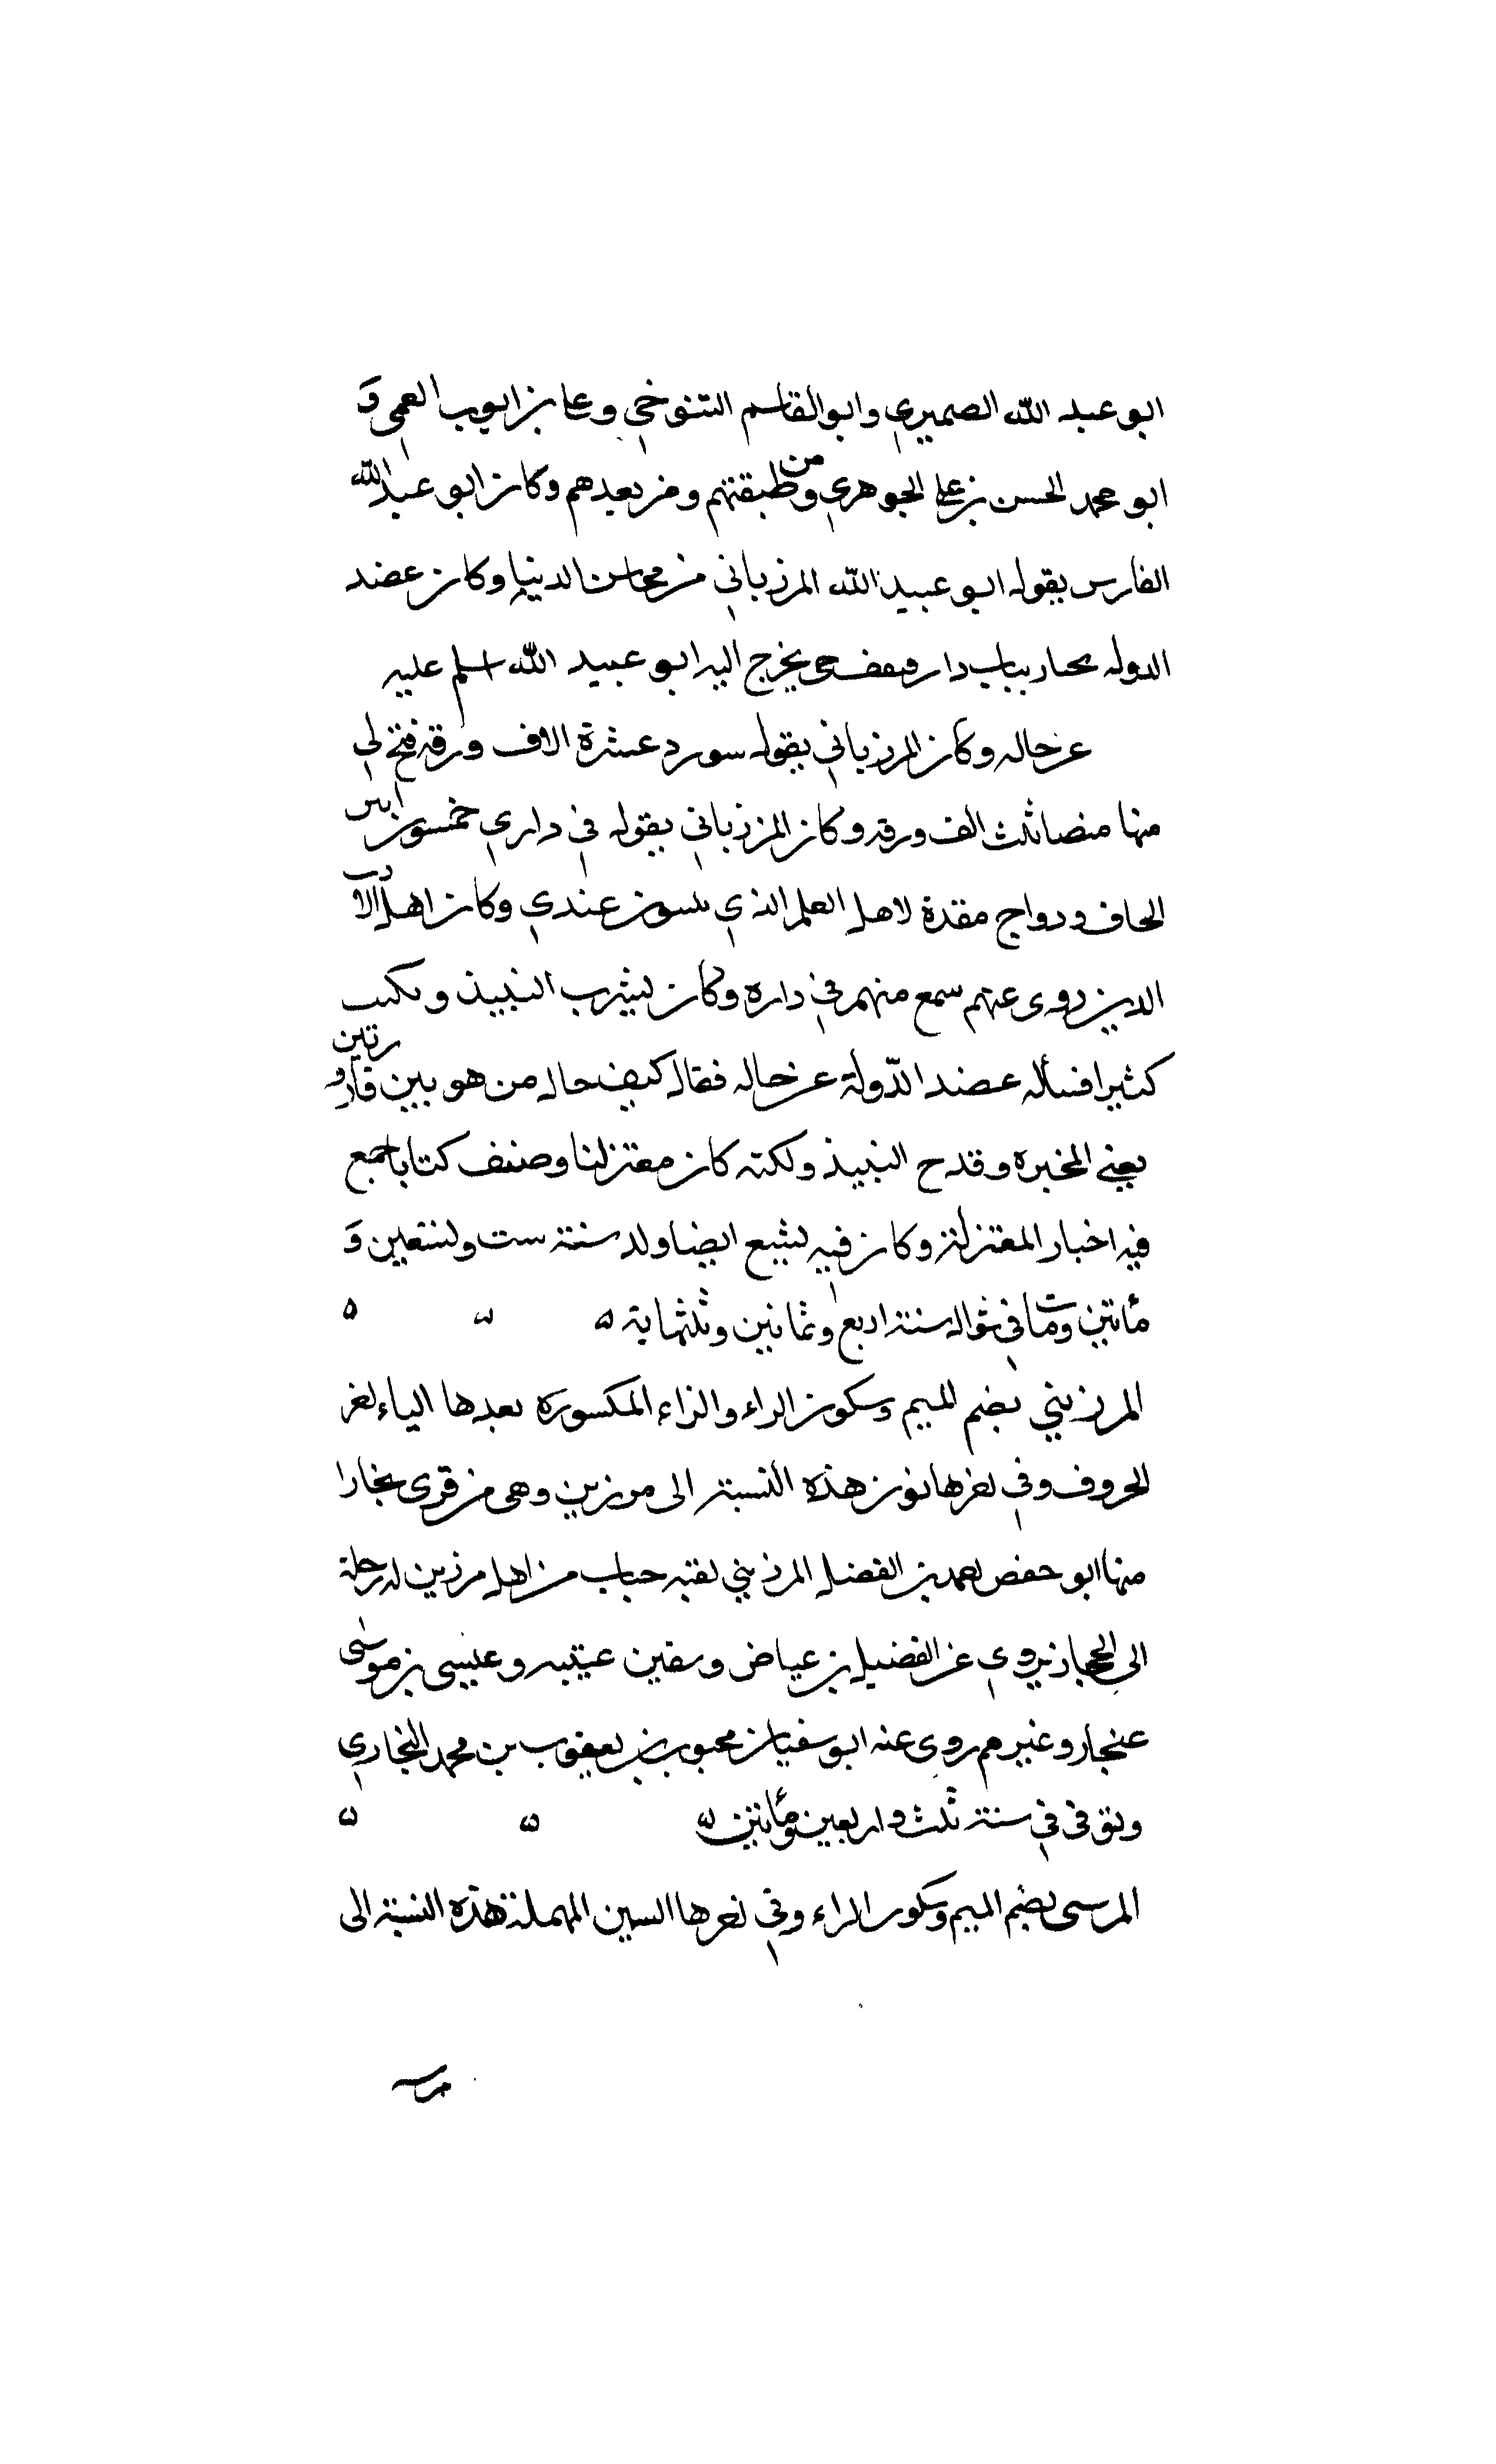 ابو عبد الله الصميري وابو القاسم التنوخي وعلي بن ايوب القمي و
ابو محمد الحسن بن علي الجوهري ومن طبقتهم ومن بعدهم وكان ابو عبد الله
الفارس يقول ابو عبيد الله المرزباني من محاسن الدنيا وكان عضد
الدوله بباب دار يخرج اليه ابو عبيد الله اسلم عليه
عن حاله وكان المرزباني يقول سورد عشرة الاف ورقه فتح لي
منها ثلث الف ورقه وكان المرزباني يقول في داري خمسون ابين
الحاف ودواج مقدة لاهل العلم الذي عندي وكان اهل الادب
الدين روى عنهم سمع منهم في داره وكان يشرب النبيذ و
كثيرا فسأله عضد الدولة عن حاله فقال كيف حال من هو بين قارورتين
يعني المحبره وقدح النبيذ ولكنه كان معتزليا وصنف كتابا جمع
فيه اخبار المعتزلة وكان فيه تشيع ايضا ولد سنة ست وتسعين و
مأتين ومات في شوال سنة اربع وثمانين وثلثماية ه ه ه
المرزيني بضم الميم وسكون الراء والزاء المكسوره بعدها الياء اخر
الحروف وفي اخرها نون هذه النسبة الى مرزين وهى من قرى بخارا
منها ابو حفص احمد بن الفضل المرزيني لقبه حباب من اهل مرزين له رحلة
الى الحجاز يروي عن الفضيل بن عياض وسفين عيينه وعيسى بن موسى
غنجار وغيرهم روى عنه ابو سفيان محبوب بن يعقوب بن محمد البخاري
وتوفى في سنة ثلث واربعين ومأتين ه ه ه
المرسى بضم الميم وسكون الراء وفي اخرها السين المهملة هذه النسبة الى
مرسيه